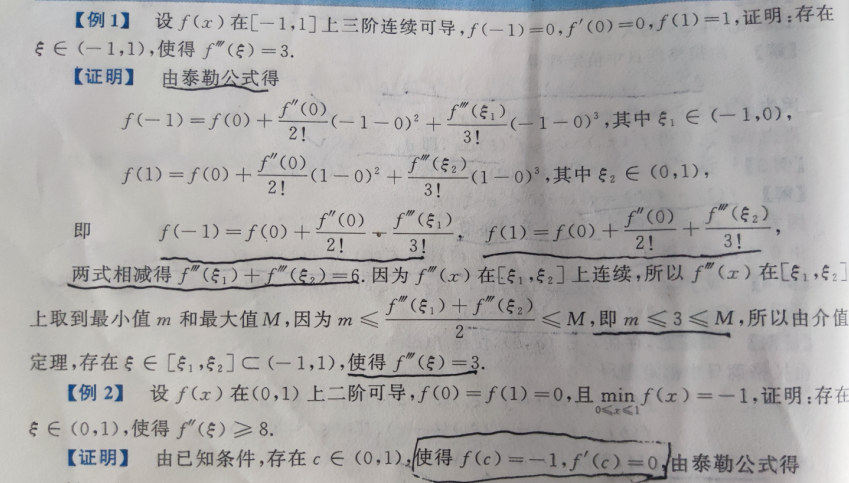 【例1】 设 f(x)在[-1,1]上三阶连续可导,f(-1)=0,f′(0)=0,f(1)=1,证明:存在
ξ∈(-1,1),使得 f‴(ξ)=3.
【证明】 由泰勒公式得
f(-1)=f(0)+f″(0)/2!(-1-0)²+f‴(ξ₁)/3!(-1-0)³,其中 ξ₁∈(-1,0),
f(1)=f(0)+f″(0)/2!(1-0)²+f‴(ξ₂)/3!(1-0)³,其中 ξ₂∈(0,1),
即 f(-1)=f(0)+f″(0)/2!-f‴(ξ₁)/3!, f(1)=f(0)+f″(0)/2!+f‴(ξ₂)/3!,
两式相减得 f‴(ξ₁)+f‴(ξ₂)=6.因为 f‴(x)在[ξ₁,ξ₂]上连续,所以 f‴(x)在[ξ₁,ξ₂]
上取到最小值 m 和最大值 M,因为 m≤(f‴(ξ₁)+f‴(ξ₂))/2≤M,即 m≤3≤M,所以由介值
定理,存在 ξ∈[ξ₁,ξ₂]⊂(-1,1),使得 f‴(ξ)=3.
【例2】 设 f(x)在(0,1)上二阶可导,f(0)=f(1)=0,且 min_{0≤x≤1} f(x)=-1,证明:存在
ξ∈(0,1),使得 f″(ξ)≥8.
【证明】 由已知条件,存在 c∈(0,1),使得 f(c)=-1,f′(c)=0,由泰勒公式得